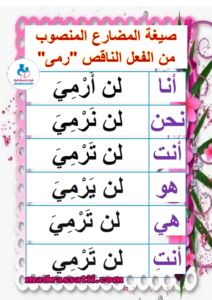 صيغة المضارع المنصوب
من الفعل الناقص "رمى"
أنا لن أَرْمِيَ
نحن لن نَرْمِيَ
أنتَ لن تَرْمِيَ
هو لن يَرْمِيَ
هي لن تَرْمِيَ
أنتِ لن تَرْمِي
madrassatii.com